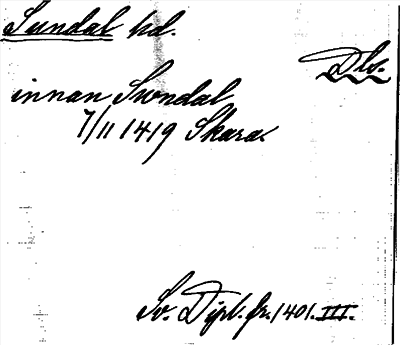 Sundal hd.
Dls.
innan Swndal
7/11 1419 Skara.
Sv. Dipl. fr. 1401. III.